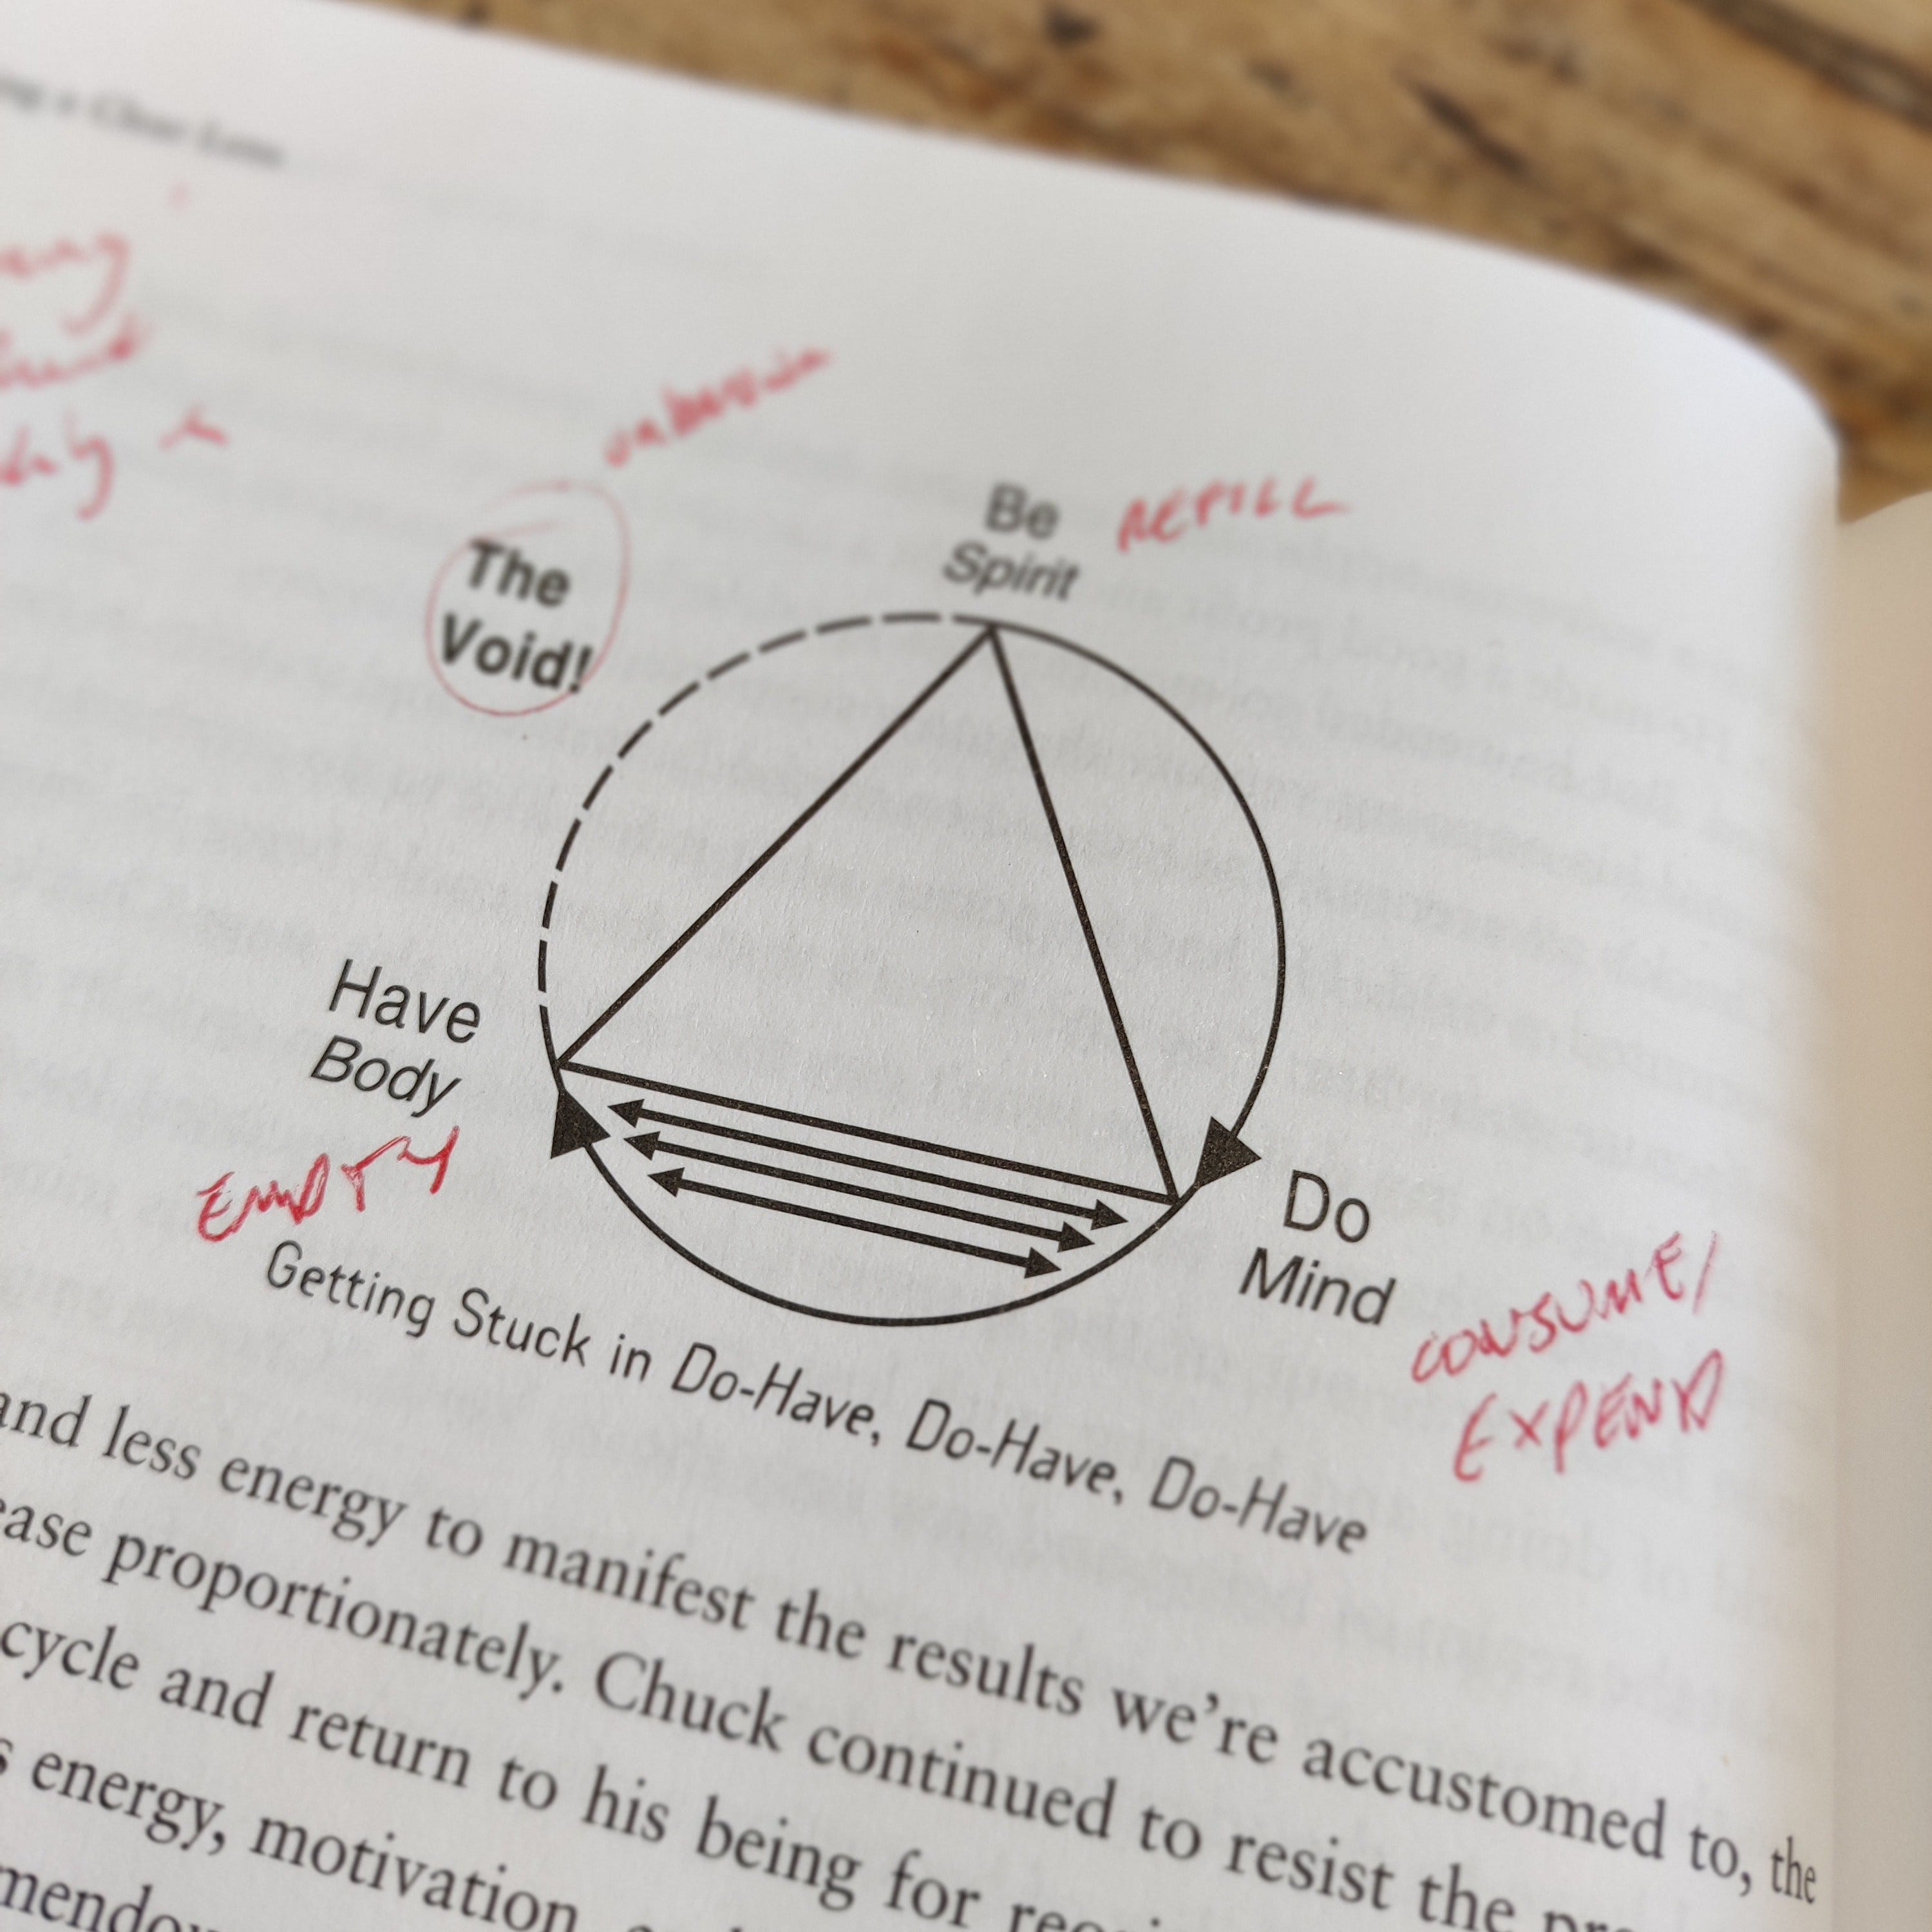 a Clear Lens
Be REFILL
Spirit
The
Void!
Have
Body
EMPTY
Do
Mind
CONSUME/
EXPEND
Getting Stuck in Do-Have, Do-Have, Do-Have
and less energy to manifest the results we're accustomed to, the
proportionately. Chuck continued to resist the
cycle and return to his being for
energy, motivation